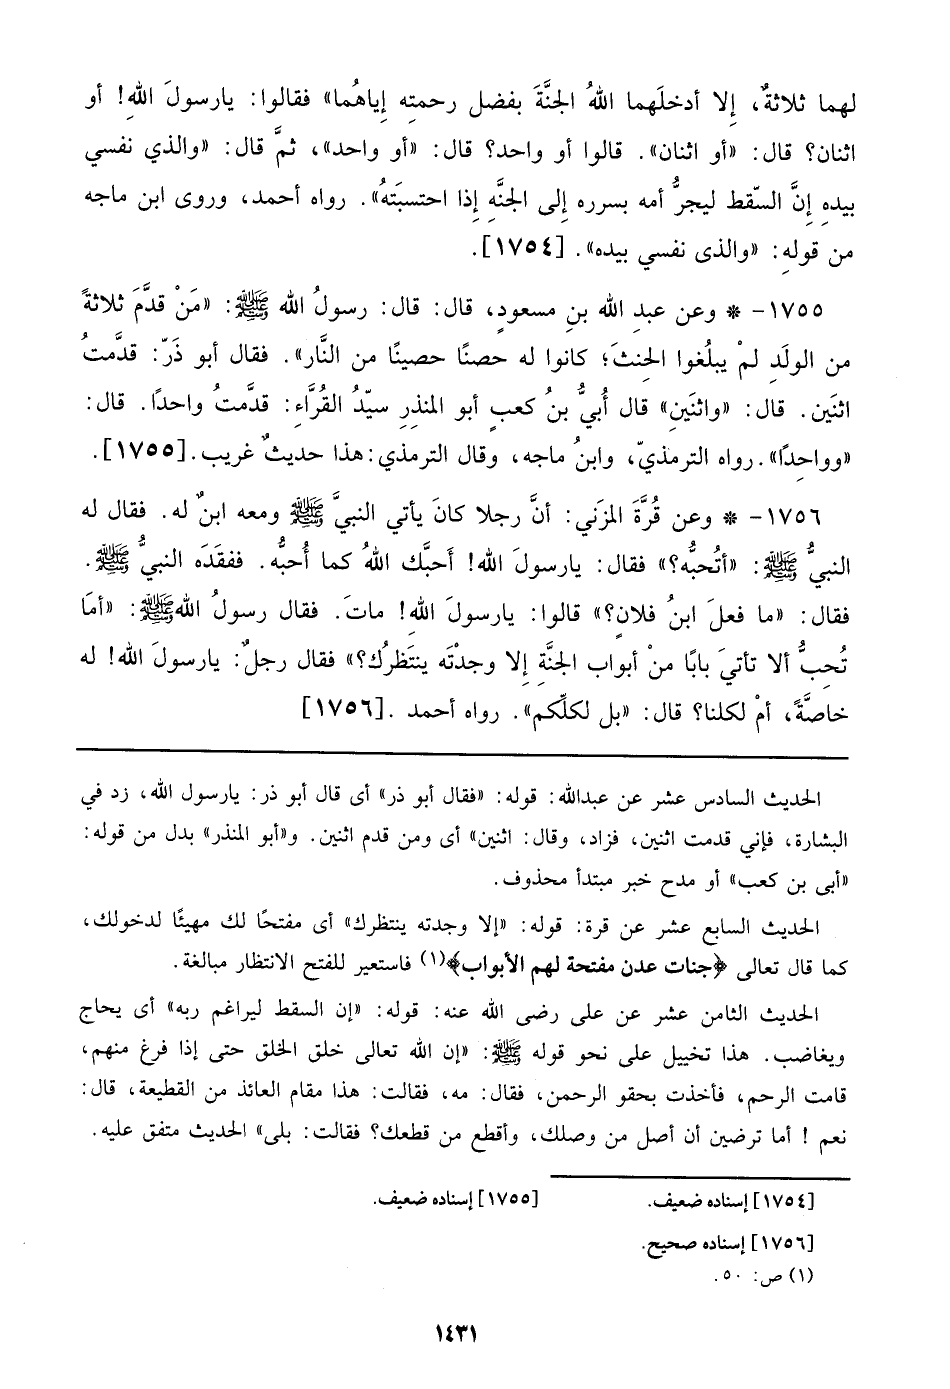 لهما ثلاثةٌ، إِلا أدخلَهما اللهُ الجنَّةَ بفضل رحمتِه إِياهُما» فقالوا: يارسولَ اللهِ! أو
اثنان؟ قال: «أو اثنان». قالوا أو واحد؟ قال: «أو واحد»، ثمَّ قال: «والذي نفسي
بيدِه إِنَّ السّقط ليجرُّ أمه بسررِه إِلى الجنَّهِ إِذا احتسبَتهُ». رواه أحمد، وروى ابن ماجه
من قولهِ: «والذى نفسي بيده». [١٧٥٤].
١٧٥٥- * وعن عبدِ الله بنِ مسعودٍ، قال: قال: رسولُ الله ﷺ: «مَنْ قدَّمَ ثلاثةً
من الولَدِ لمْ يبلُغوا الحِنثَ؛ كانوا له حصنًا حصينًا من النَّار». فقال أبو ذَرّ: قدَّمتُ
اثنَين. قال: «واثنَينِ» قال أُبيُّ بنُ كعبٍ أبو المنذرِ سيّدُ القُرَّاءِ: قدَّمتُ واحدًا. قال:
«وواحِدًا».رواه الترمذيّ، وابنُ ماجه، وقال الترمذي:هذا حديثٌ غريب.[١٧٥٥].
١٧٥٦- * وعن قُرَّةَ المزَني: أنَّ رجلا كانَ يأتي النبيَّ ﷺ ومعه ابنٌ له. فقال له
النبيُّ ﷺ: «أتُحبُّه؟» فقال: يارسولَ الله! أَحبَّك اللهُ كما أُحبُّه. ففقَدَه النبيُّ ﷺ.
فقال: «ما فعلَ ابنُ فلانٍ؟» قالوا: يارسولَ اللهِ! ماتَ. فقال رسولُ اللهﷺ: «أمَا
تُحِبُّ ألا تأتيَ بابًا منْ أبواب الجنَّةِ إِلا وجدْتَه ينتَظرُك؟» فقال رجلٌ: يارسولَ الله! له
خاصَّةً، أمْ لكلنا؟ قال: «بل لكلِّكم». رواه أحمد .[١٧٥٦]
الحديث السادس عشر عن عبدالله: قوله: «فقال أبو ذر» أى قال أبو ذر: يارسول الله، زد في
البشارة، فإني قدمت اثنين، فزاد، وقال: اثنين» أى ومن قدم اثنين. و«أبو المنذر» بدل من قوله:
«أبى بن كعب» أو مدح خبر مبتدأ محذوف.
الحديث السابع عشر عن قرة: قوله: «إلا وجدته ينتظرك» أى مفتحًا لك مهيئًا لدخولك،
كما قال تعالى ﴿جنات عدن مفتحة لهم الأبواب﴾(١) فاستعير للفتح الانتظار مبالغة.
الحديث الثامن عشر عن على رضى الله عنه: قوله: «إن السقط ليراغم ربه» أى يحاج
ويغاضب. هذا تخييل على نحو قوله ﷺ: «إن الله تعالى خلق الخلق حتى إذا فرغ منهم،
قامت الرحم، فأخذت بحقو الرحمن، فقال: مه، فقالت: هذا مقام العائذ من القطيعة، قال:
نعم ! أما ترضين أن أصل من وصلك، وأقطع من قطعك؟ فقالت: بلى» الحديث متفق عليه.
[١٧٥٤] إسناده ضعيف. [١٧٥٥] إسناده ضعيف.
[١٧٥٦] إسناده صحيح.
(١) ص: ٥٠.
١٤٣١